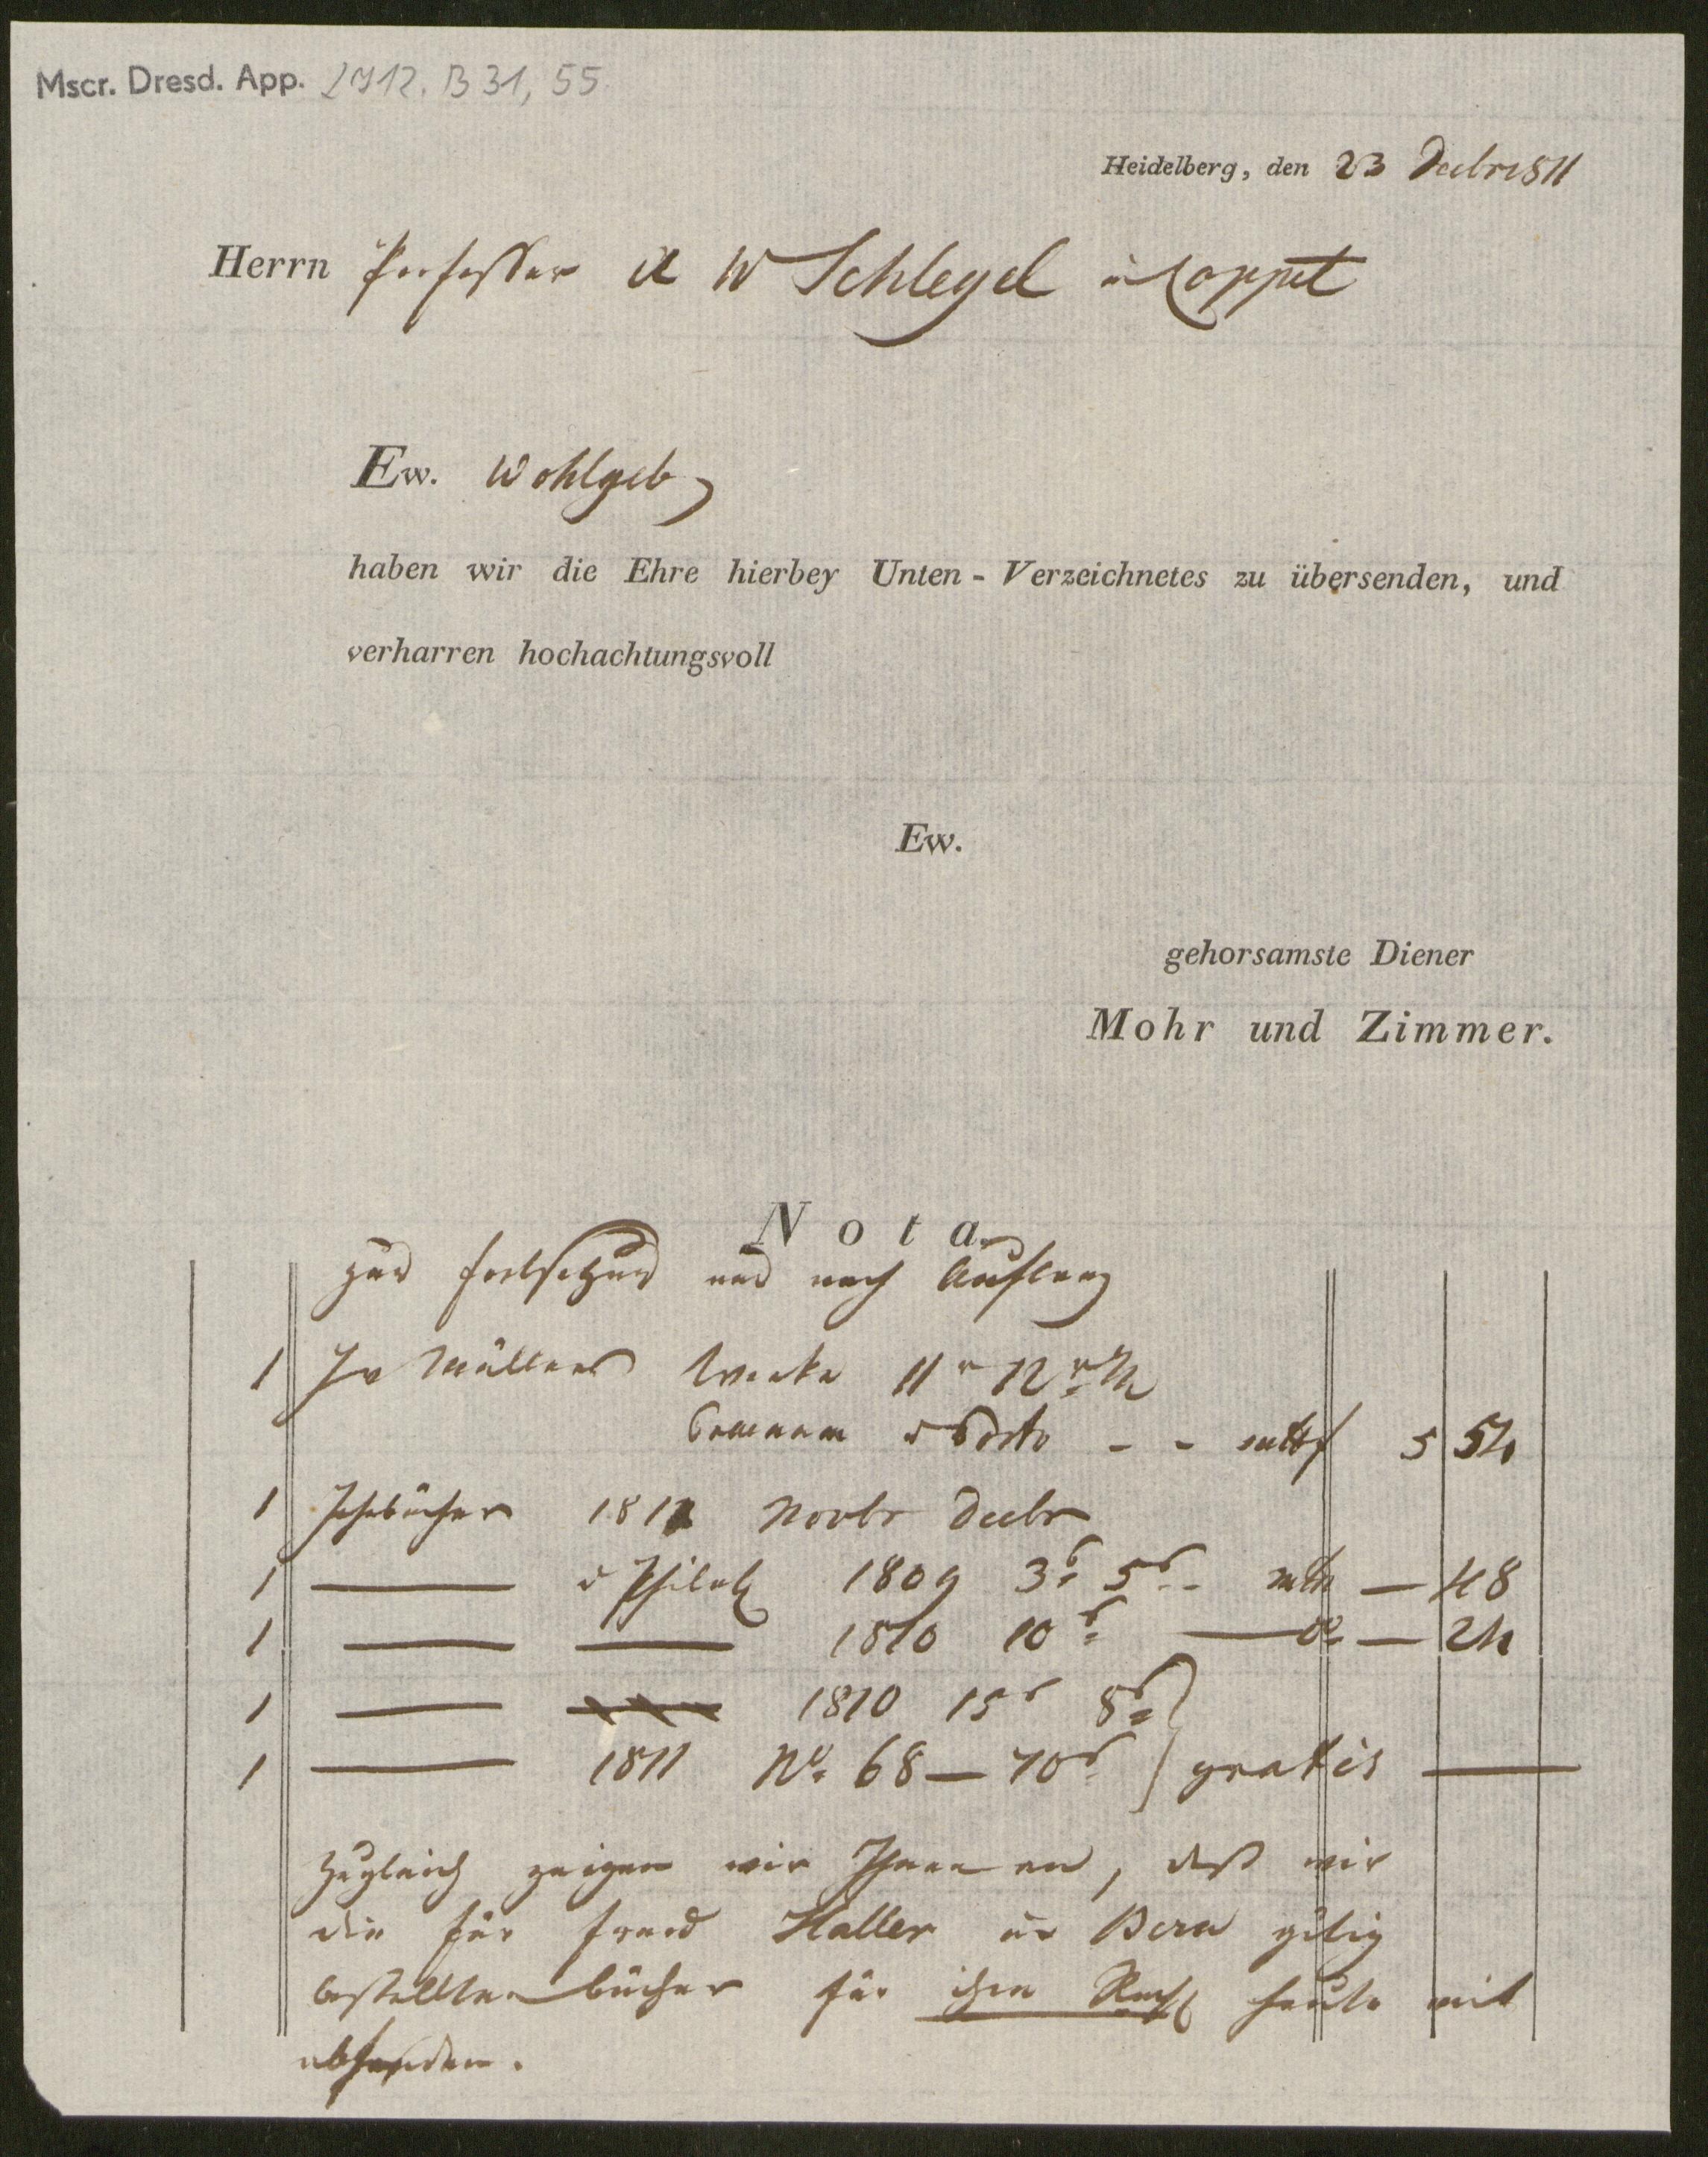 Mscr. Dresd. App. 2712, B 31, 55.
Heidelberg, den 23 Decbr 1811
Herrn Professor A W Schlegel in Coppet
Ew. Wohlgeb
haben wir die Ehre hierbey Unten - Verzeichnetes zu übersenden, und
verharren hochachtungsvoll
Ew.
gehorsamste Diener
Mohr und Zimmer.
Nota.
zur Fortsetzung und nach
1 Müllers Werke 11 12
5 54
1 Jahrbücher 1811 Novbr Decbr
1 — d Philol 1809 3 5 — 48
1 — — 1810 10 — 24
1 — 1810 15 8
1 — 1811 No. 68 — 70 gratis —
Zugleich zeigen wir Ihnen an, daß wir
die für Haller in Bern gütig
bestellten Bücher für heute mit
absenden.